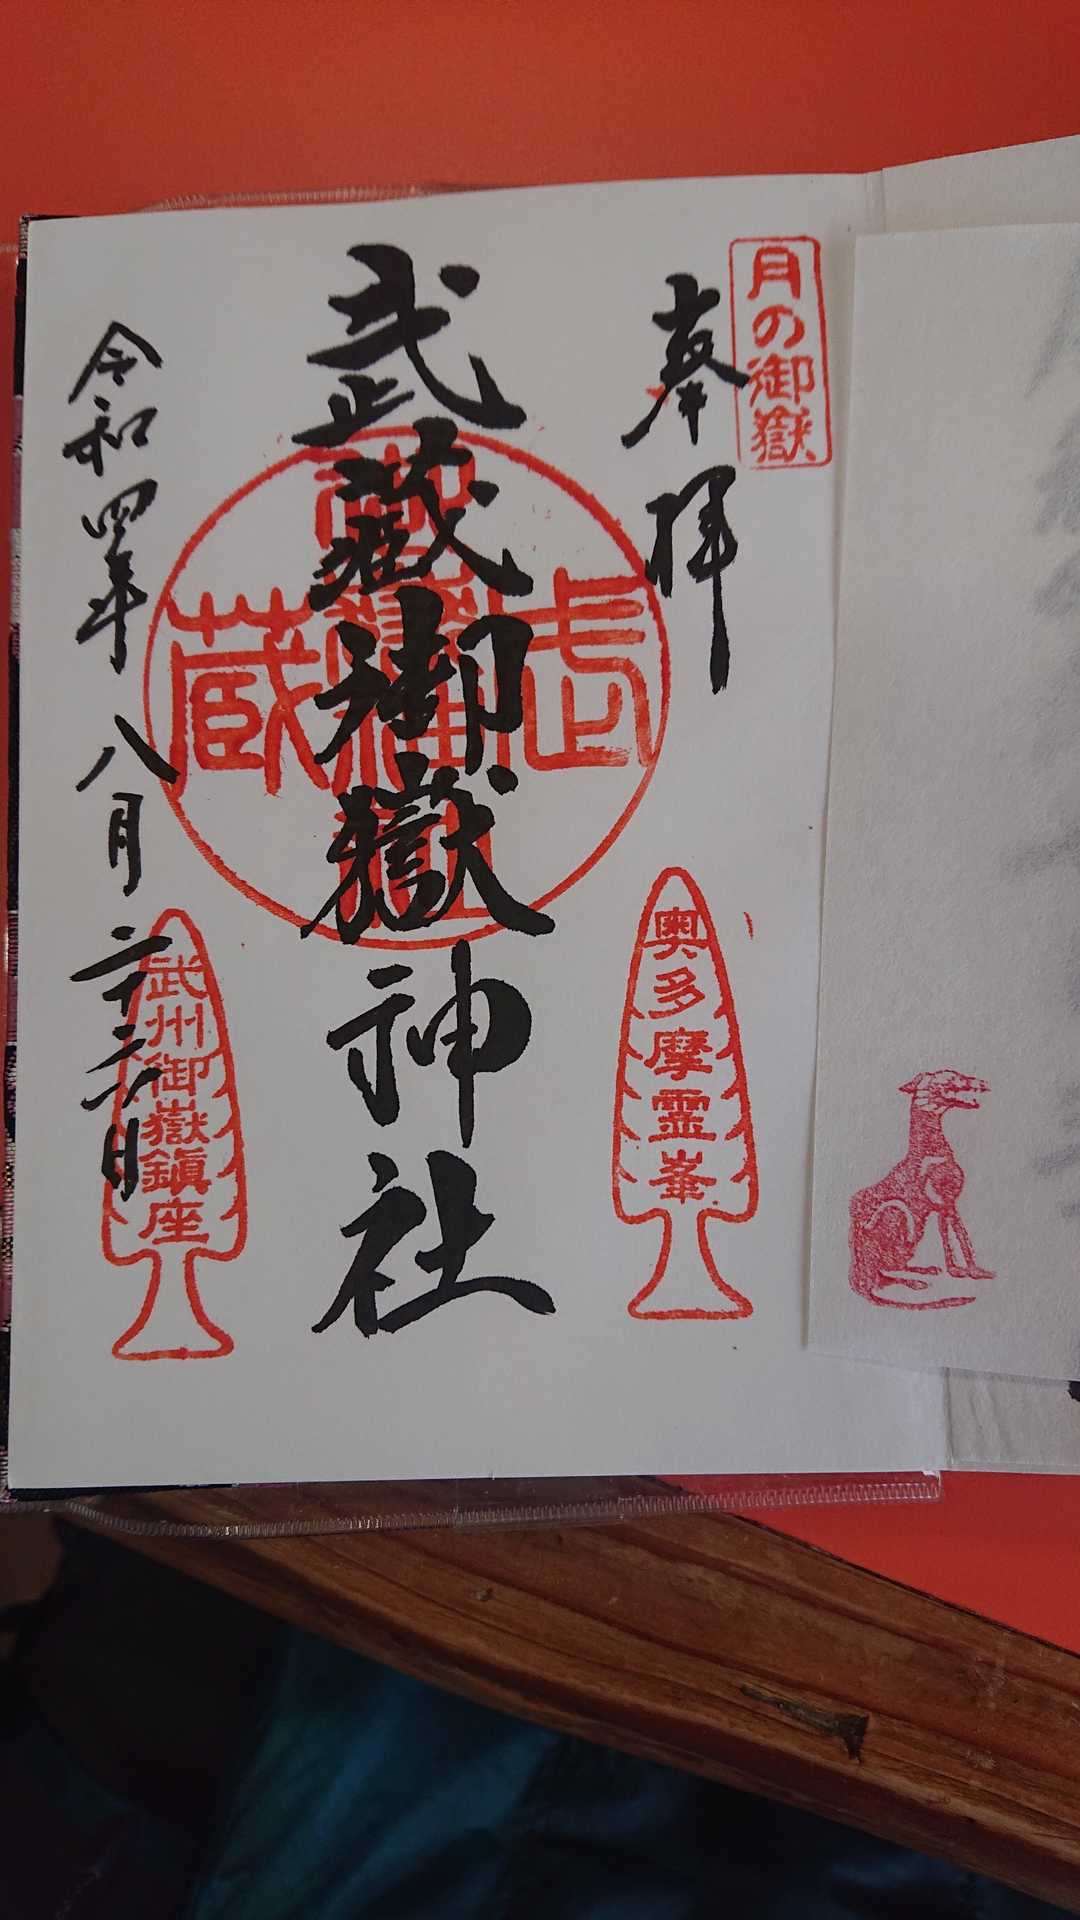 月の御嶽
奉拝
武蔵御嶽神社
武蔵
奥多摩霊峯
令和四年八月二十二日
武州御嶽鎮座